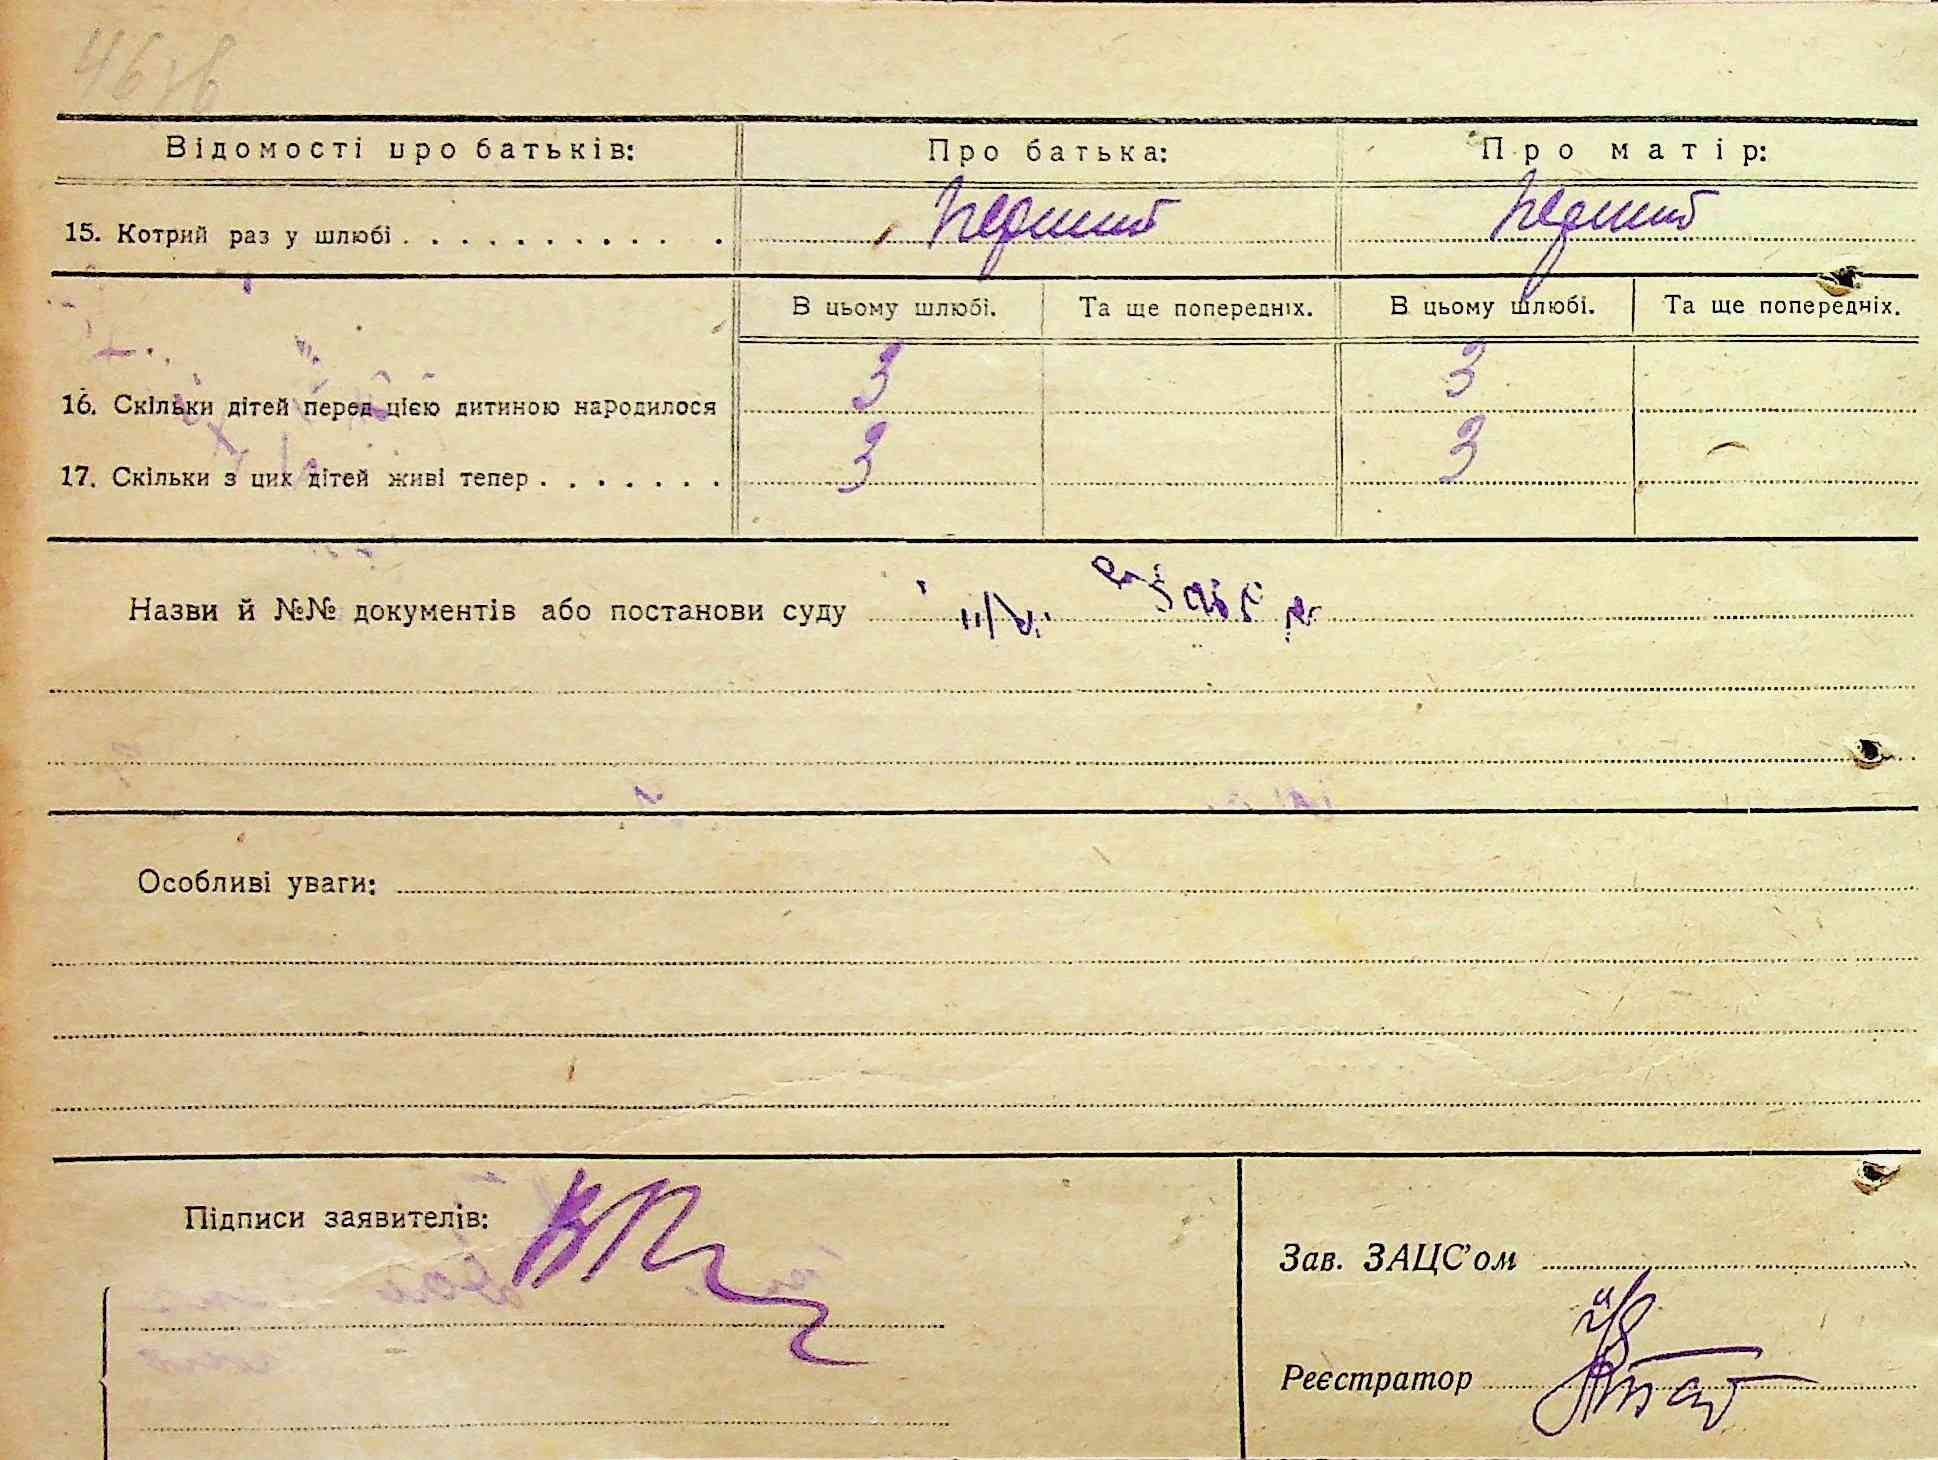 Відомості про батьків: Про батька: Про матір:
15. Котрий раз у шлюбі . . . . . . . . . . . . перший перший
В цьому шлюбі. Та ще попередніх. В цьому шлюбі. Та ще попередніх.
16. Скільки дітей перед цією дитиною народилося 3 3
17. Скільки з цих дітей живі тепер . . . . . . . 3 3 —
Назви й №№ документів або постанови суду
Особливі уваги:
Підписи заявителів:
Зав. ЗАЦС'ом
Реєстратор